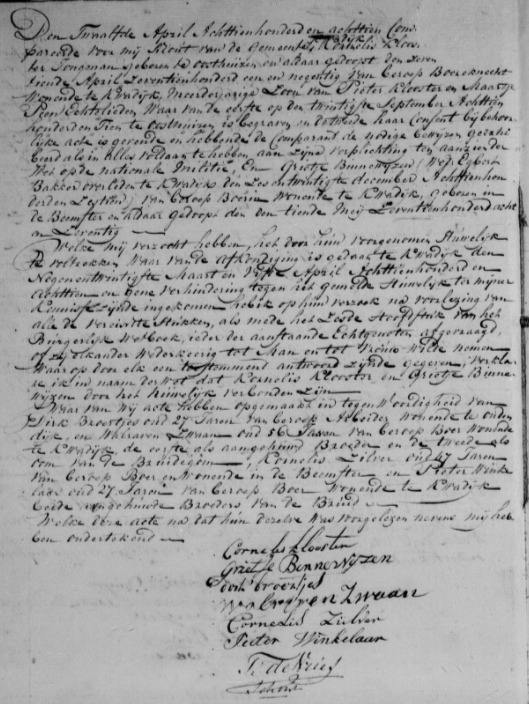 Den Twaalfde April Achttienhonderd en achttien Com
pareerde voor mij Schout van de Gemeente Kwadijk Kornelis Kloos
ter Jongman geboren te oosthuizen en aldaar gedoopt den Zeven
tiende April Zeventienhonderd een en negentig van beroep Boereknecht
Wonende te Kwadijk, Meerderjarige Zoon van Pieter Klooster en Maartje
Echtelieden Waar van de eerste op den twintigste September Achttien
honderd en Tien te oosthuizen is begraven en de tweede haar Consent bij behoor
lijke acte is gevende en hebbende de Comparant de nodige bewijzen geexhi
beerd als in alles voldaan te hebben aan Zijne verplichting ten aanzien der
Wet op de nationale Militie, En Grietje Binnewijzen Wed. Egbert
Bakker overleden te Kwadijk den Zes en twintigste december Achttienhon
derd en Zestien) van beroep Boerin Wonende te Kwadijk, geboren in
de Beemster en aldaar gedoopt den tiende Meij Zeventienhonderd acht
en Zeventig
Welke mij verzocht hebben, het door hun voorgenomen Huwelijk
te voltrekken Waar van de afkondiging is gedaan te Kwadijk den
Negenentwintigste Maart en Vijfde April Achttienhonderd en
Achttien en gene verhindering tegen het gemelde Huwelijk ter mijner
Kennisse Zijnde ingekomen heb ik op hun verzoek na voorlezing van
alle de vereiste Stukken, als mede het Zesde Hoofdstuk van het
Burgerlijk Wetboek, ieder der aanstaande Echtgenoten afgevraagd,
of Zij elkander Wederkeerig tot Man en tot Vrouw Wilde nemen
Waar op door elk een toestemmend antwoord Zijnde gegeven, Verkla
re ik in naam der Wet dat Kornelis Klooster en Grietje Binne
wijzen door het huwelijk verbonden Zijn
Waar van wij acte hebben opgemaakt in tegenwoordigheid van
Dirk Broertjes oud 27 Jaren van beroep Arbeider Wonende te
dijk, en Walraven Zwaan oud 56 Jaren van beroep Boer Wonende
te Kwadijk, de eerste als aangehuwd Broeder en de tweede als
oom van de Bruidegom, Kornelis Zilver oud 47 Jaren
van beroep Boer en Wonende in de Beemster en Pieter Winke
laar oud 27 Jaren van beroep Boer Wonende te Kwadijk
beide aangehuwde Broeders van de Bruid
Welke deze acte na dat hun dezelve Was voorgelezen nevens mij heb
ben ondertekend
Cornelis Klooster
Grietje Bennewyzen
dirk broertjes
Walraven Zwaan
Cornelis Zilver
Pieter Winkelaar
de Vries
Schout